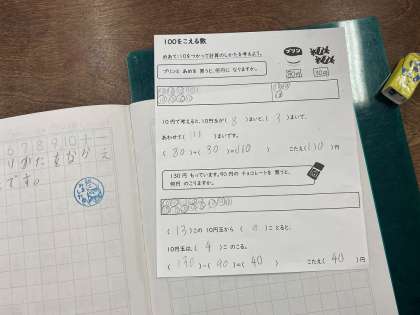 100をこえる数
めあて:10をつかって計算のしかたを考えよう。
プリンと あめを 買うと、何円に なりますか。
プリン
10円で考えると、10円玉が( 8 )まいと、( 3 )まいで、
あわせて( 11 )まいです。
こたえ(110)円
130円 もっています。90円の チョコレートを 買うと、
何円 のこりますか。
( 13 )この 10円玉から ( 9 )こ とると、
10円玉は、( 4 )こ のこる。
(130)-(90)=(40) こたえ( 40 )円
6 7 8 9 10
です。